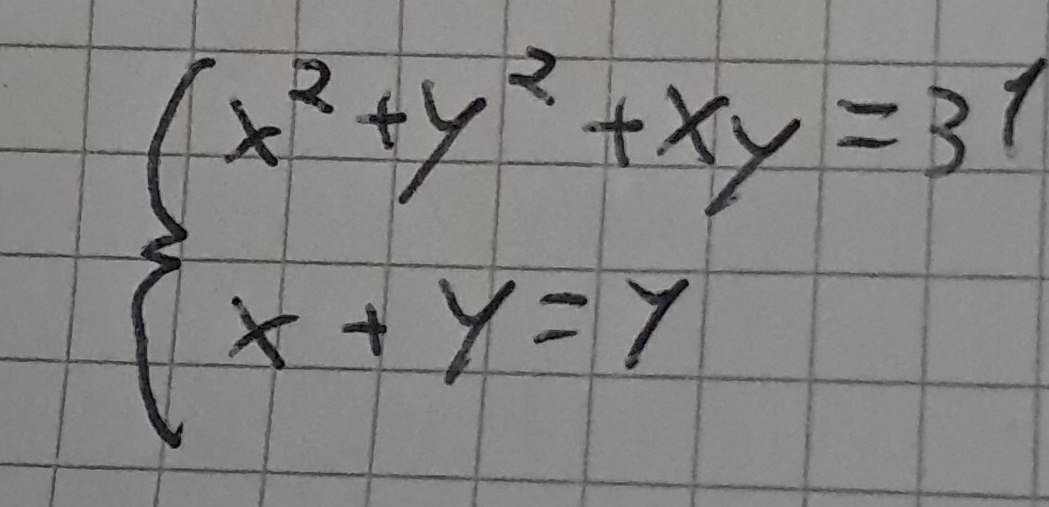 x² + y² + xy = 31
x + y = y